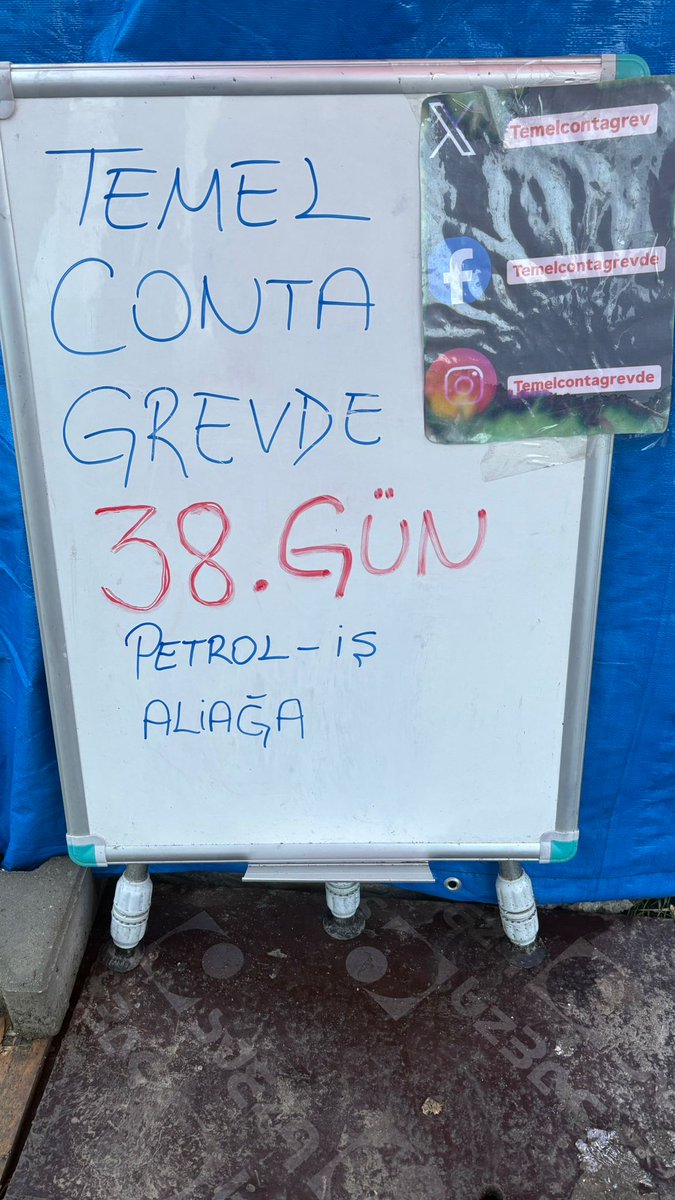 TEMEL
CONTA
GREVDE
38.GÜN
PETROL-İŞ
ALİAĞA
Temelcontagrev
Temelcontagrevde
Temelcontagrevde